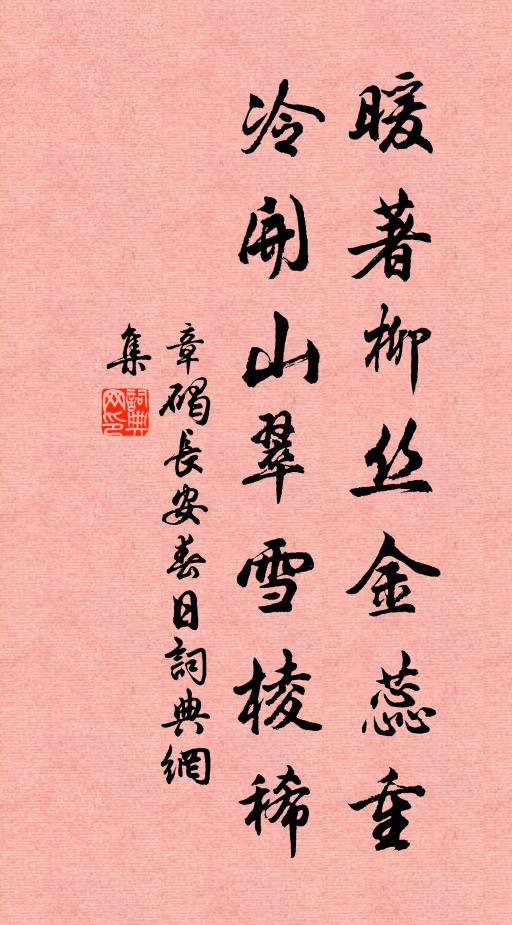 暖著柳丝金蕊重
冷開山翠雪棱稀
章碣長安春日詞典網
集
詞典
网印